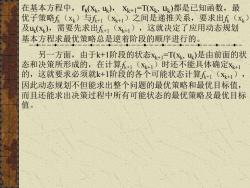 在基本方程中，rₖ(xₖ, uₖ)，xₖ₊₁=T(xₖ, uₖ)都是已知函数，最
优子策略fₖ（xₖ）与fₖ₊₁（xₖ₊₁）之间是递推关系，要求出fₖ（xₖ）
及uₖ(xₖ)，需要先求出fₖ₊₁（xₖ₊₁），这就决定了应用动态规划
基本方程求最优策略总是逆着阶段的顺序进行的。
另一方面，由于k+1阶段的状态xₖ₊₁=T(xₖ, uₖ)是由前面的状
态和决策所形成的，在计算fₖ₊₁（xₖ₊₁）时还不能具体确定xₖ₊₁
的，这就要求必须就k+1阶段的各个可能状态计算fₖ₊₁（xₖ₊₁），
因此动态规划不但能求出整个问题的最优策略和目标值，
而且还能求出决策过程中所有可能状态的最优策略及最优目标
值。